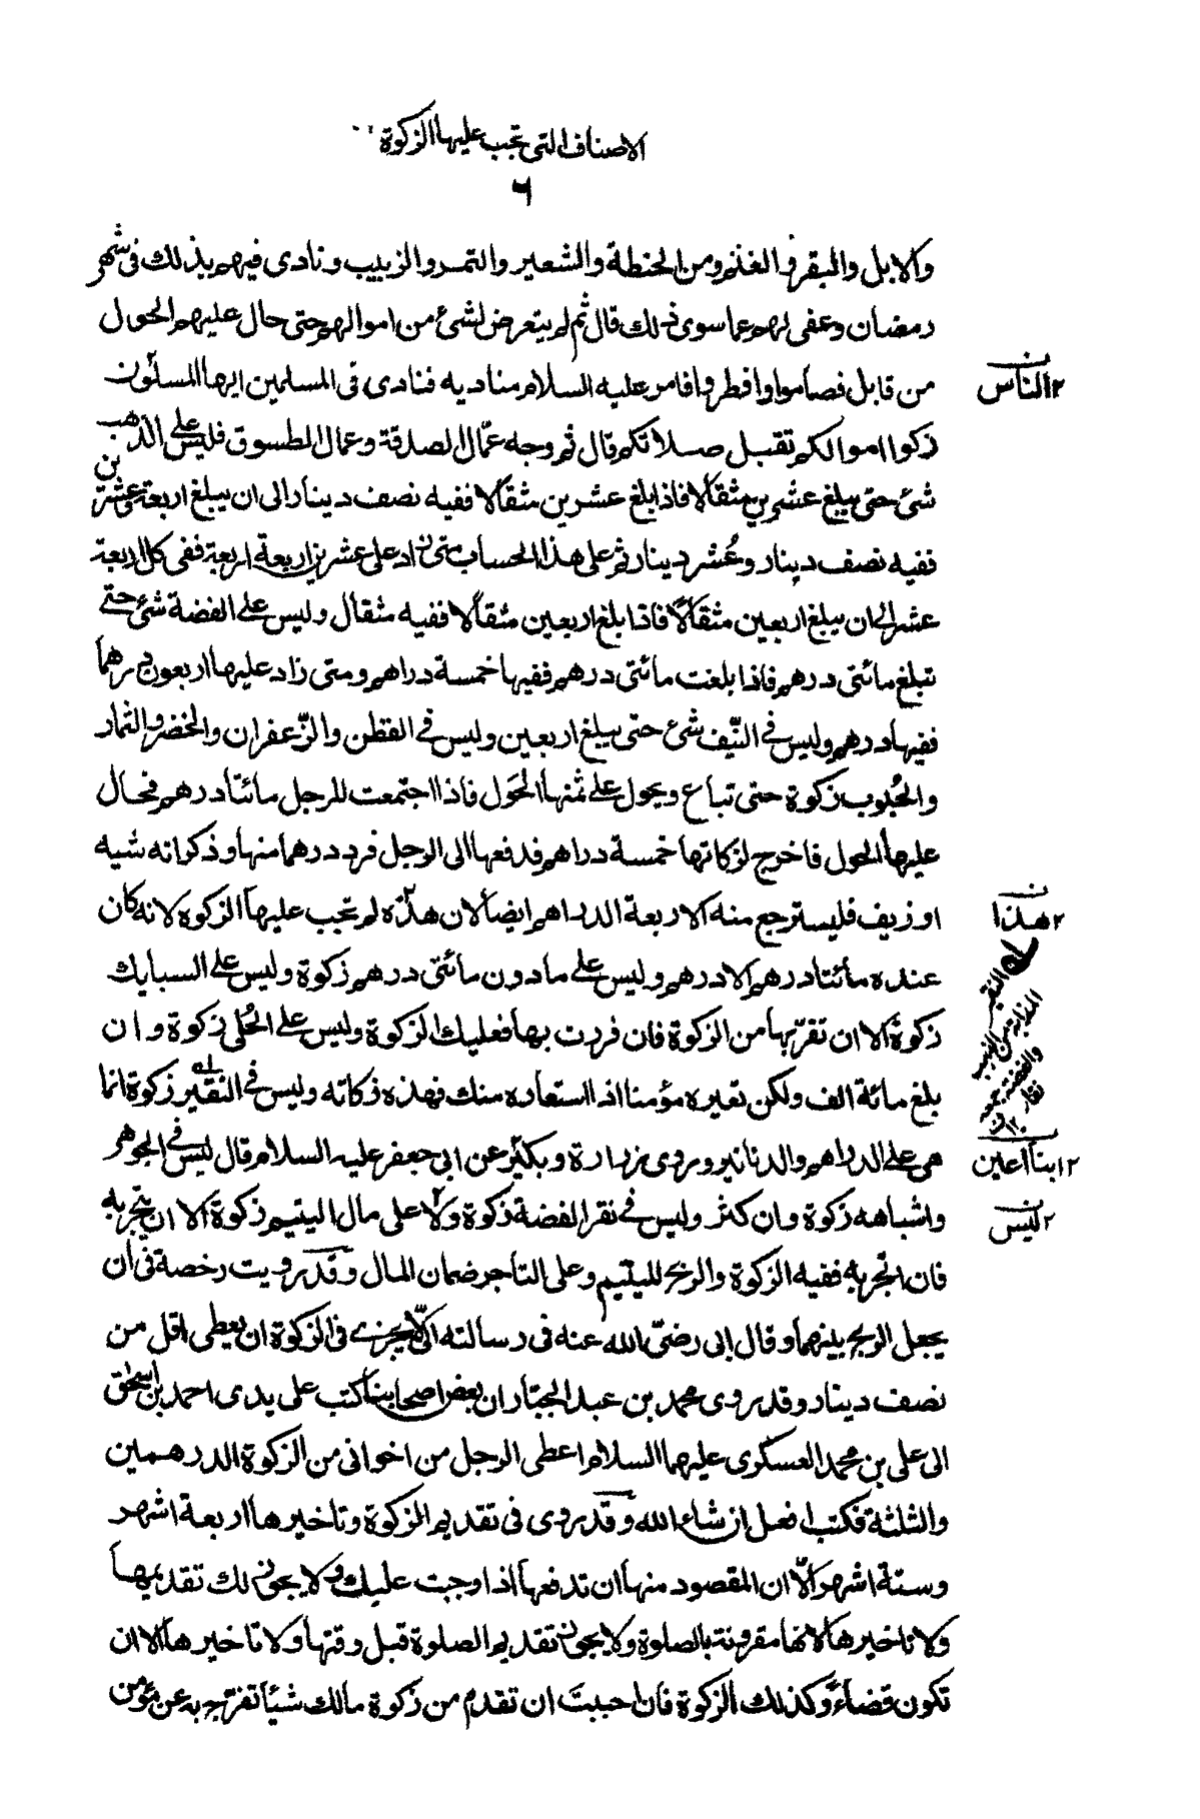 الاصناف التى تجب عليها الزكوة
٦
والابل والبقر والغنم ومن الحنطة والشعير والتمر والزبيب ونادى فيهم بذلك فى شهر
رمضان وعفى لهم عما سوى ذلك قال ثم لم يتعرض لشئ من اموالهم حتى حال عليهم الحول
من قابل فصاموا وافطروا فامر عليه السلام مناديه فنادى فى المسلمين ايها المسلمون
زكوا اموالكم تقبل صلاتكم قال ثم وجه عمّال الصدقة وعمال الطسوق فليس على الذهب
شئ حتى يبلغ عشرين مثقالا فاذا بلغ عشرين مثقالا ففيه نصف دينار الى ان يبلغ اربعة وعشرين
ففيه نصف دينار وعُشر دينار ثم على هذا الحساب متى زاد على عشرين اربعة اربعة ففى كل اربعة
عشر الى ان يبلغ اربعين مثقالًا فاذا بلغ اربعين مثقالًا ففيه مثقال وليس على الفضة شئ حتى
تبلغ مائتى درهم فاذا بلغت مائتى درهم ففيها خمسة دراهم ومتى زاد عليها اربعون درهماً
ففيها درهم وليس فى النّيف شئ حتى يبلغ اربعين وليس فى القطن والزّعفران والخضر والثمار
والحُبوب زكوة حتى تباع ويحول على ثمنها الحَول فاذا اجتمعت للرجل مائتا درهم فحال
عليها الحول فاخرج لزكاتها خمسة دراهم فدفعها الى الرجل فرد درهما منها وذكر انه شبه
او زيف فليسترجع منه الاربعة الدراهم ايضاً لان هذه لم تجب عليها الزكوة لانه كان
عنده مائتا درهم الا درهم وليس على ما دون مائتى درهم زكوة وليس على السبايك
زكوة الا ان تفرّ بها من الزكوة فان فررت بها فعليك الزكوة وليس على الحُلى زكوة وان
بلغ مائة الف ولكن تعيره مؤمنا اذا استعاره منك فهذه زكاته وليس فى النقير زكوة انما
هى على الدراهم والدنانير وروى زرارة وبكير عن ابى جعفر عليه السلام قال ليس فى الجوهر
واشباهه زكوة وان كثر وليس فى نقر الفضة زكوة ولا على مال اليتيم زكوة الا ان يتجر به
فان اتجر به ففيه الزكوة والربح لليتيم وعلى التاجر ضمان المال وقد رويت رخصة فى ان
يجعل الربح بينهما وقال ابى رضىّ الله عنه فى رسالته الىّ لا يجزى فى الزكوة ان يعطى اقل من
نصف دينار وقد روى محمد بن عبد الجبّار ان بعض اصحابنا كتب على يدى احمد بن اسحٰق
الى على بن محمد العسكرى عليهما السلام اعطى الرجل من اخوانى من الزكوة الدرهمين
والثلثة فكتب افعل ان شاء الله وقد روى فى تقديم الزكوة وتاخيرها اربعة اشهر
وستة اشهر الّا ان المقصود منها ان تدفعها اذا وجبت عليك ولا يجوز لك تقديمها
ولا تاخيرها لانها مقرونة بالصلوة ولا يجوز تقديم الصلوة قبل وقتها ولا تاخيرها الا ان
تكون قضاءً وكذلك الزكوة فان احببتَ ان تقدم من زكوة مالك شيئا تفرّج به عن مؤمن
٢ الناس
٢ هذا
النقير
المذابة من الذهب
والفضة جمعه
نقار ١٢ ق
٢ ابنا اعين
٢ ليس